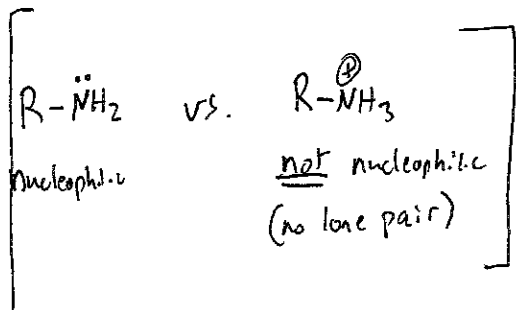 R-N̈H₂ vs. R-N⊕H₃
nucleophilic not nucleophilic
(no lone pair)